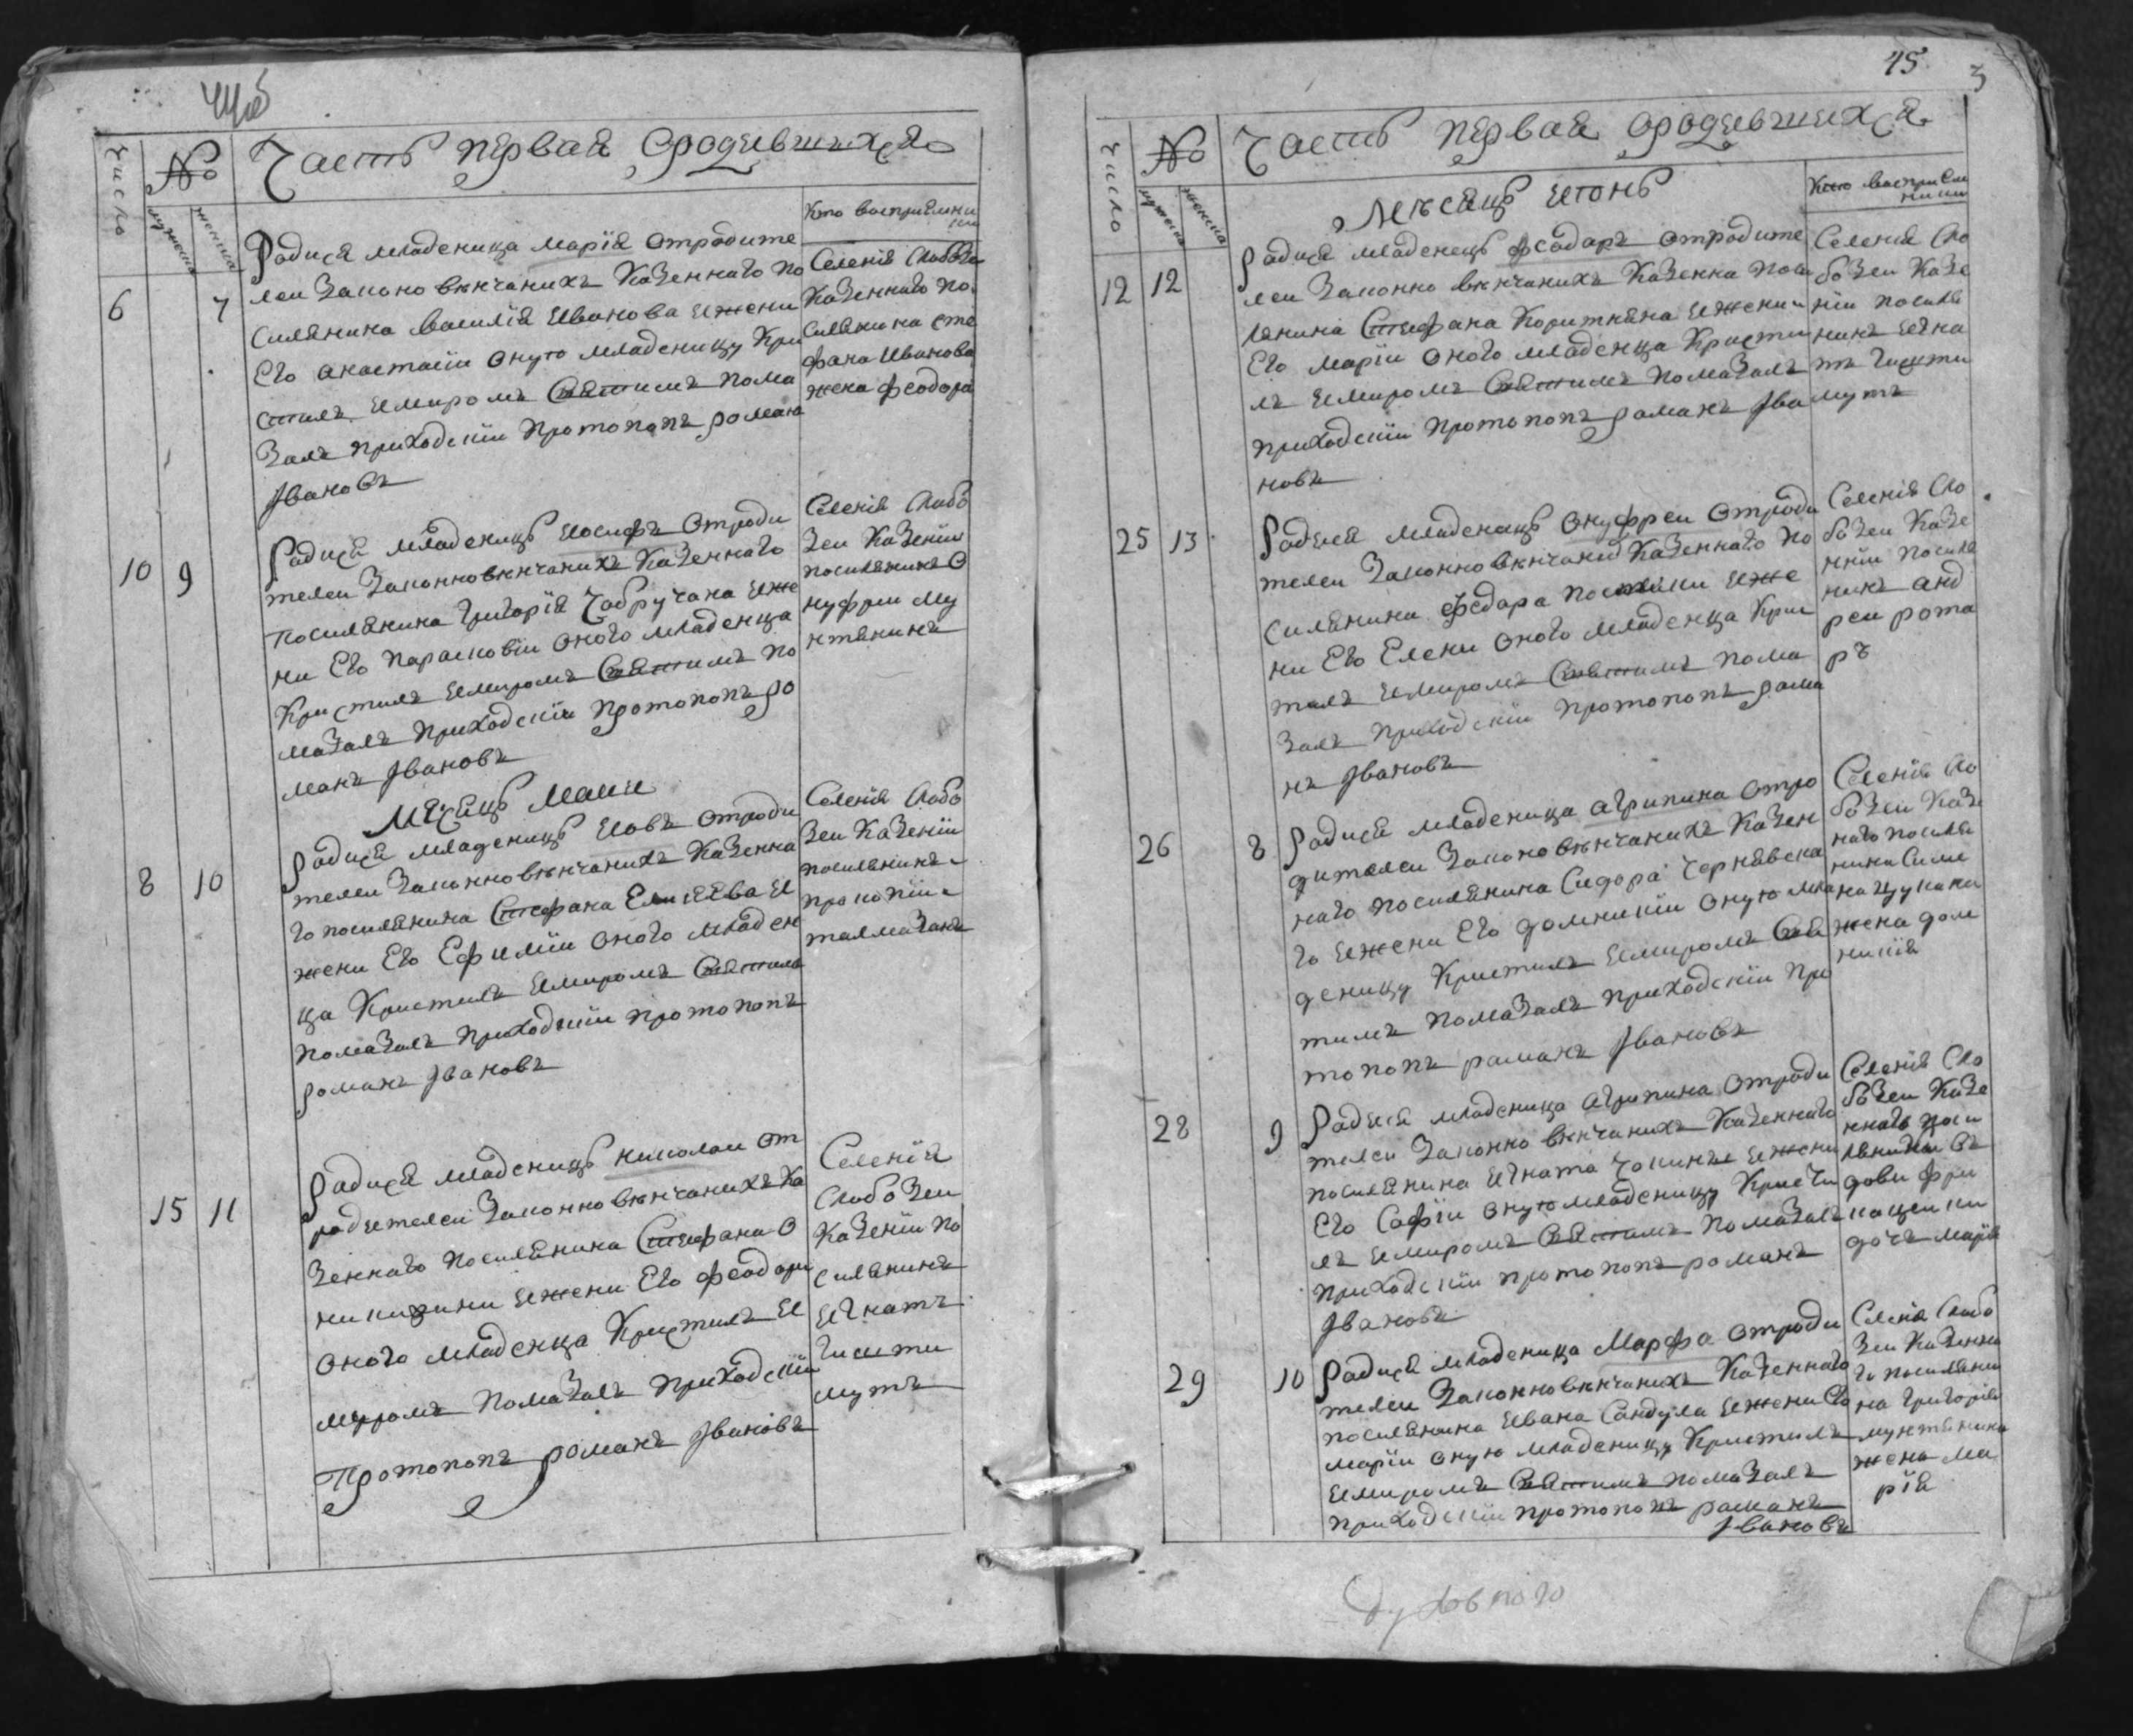 Часть первая ородившихся
число
№
мужеска
женска
Кто восприемни
ки
Родися младеница мария отродите
леи законо вѣнчаныхъ казеннаго по
силянина василия иванова ижени
Его анастасіи оную младеницу кри
стилъ имиромъ святимъ пома
залъ приходскіи протопопъ роман
Івановъ
6
7
Селенія слобозе
казеннаго по
силянина сте
фана иванова
жена феодора
Родися младеницъ иосифъ отроди
телеи законновѣнчаныхъ казеннаго
посилянина григорія чобручана иже
ни Его парасковіи оного младенца
кристилъ имиромъ святимъ по
мазалъ приходскіи протопопъ ро
манъ Івановъ
10
9
Селенія слобо
зеи казеніи
посилянинъ о
нуфрии му
нтянинъ
Мѣсяцъ маии
Родися младеницъ иовъ отроди
телеи законновѣнчаныхъ казенна
го посилянина стефана Елисеева и
жени Его Ефиміи оного младен
ца кристилъ имиромъ святимъ
помазалъ приходскіи протопопъ
романъ Івановъ
8
10
Селенія слобо
зеи казеніи
посилянинъ
прокопіи
талмазанъ
Родися младеницъ николаи от
родителеи законновѣнчаныхъ ка
зеннаго посилянина стефана о
ни ижени Его феодори
оного младенца кристилъ и
миромъ помазалъ приходскіи
протопопъ романъ Івановъ
15
11
Селенія
слобозеи
казеніи по
силянинъ
игнатъ
гишти
мутъ
45
3
Часть первая ородившихся
число
№
мужеска
женска
Кто восприем
ники
Мѣсяцъ июнь
Родися младенецъ феодоръ отродите
леи законно вѣнчаныхъ казенна поси
лянина стефана коритняна ижени
Его маріи оного младенца кристи
лъ имиромъ святимъ помазалъ
приходскіи протопопъ романъ Ива
новъ
12
12
Селенія сло
бозеи казе
ніи посиля
нинъ игна
тъ гишти
мутъ
Родися младенецъ онуфреи отроди
телеи законновѣнчаних казеннаго по
силянина федора постики иже
ни Его Елени оного младенца кри
тилъ имиромъ святимъ пома
залъ приходскіи протопопъ рома
нъ Івановъ
25
13
Селенія сло
бозеи казе
ніи посиля
нинъ анд
реи рота
ръ
Родися младеница агрипина отро
дителеи законовѣнчанихъ казен
наго посилянина сидора чернявска
го ижени Его домникіи оную мла
деницу кристилъ имиромъ свя
тимъ помазалъ приходскіи про
топопъ романъ Івановъ
26
8
Селенія сло
бозеи казе
наго посиля
нина симе
на цукана
жена дом
никія
Родися младеница агрипина отроди
телеи законно вѣнчанихъ казеннаго
посилянина игната чокинъ ижени
Его софіи оную младеницу кристи
лъ имиромъ святимъ помазалъ
приходскіи протопопъ романъ
Івановъ
28
9
Селенія сло
бозеи казе
ннаго поси
дочъ марія
Родися младеница марфа отроди
телеи законновѣнчанихъ казеннаго
посилянина ивана сандула ижени Его
маріи оную младеницу кристилъ
имиромъ святимъ помазалъ
приходскіи протопопъ романъ
Івановъ
29
10
Селенія слобо
зеи казенна
го посиляни
на григорія
мунтянина
жена ма
рія